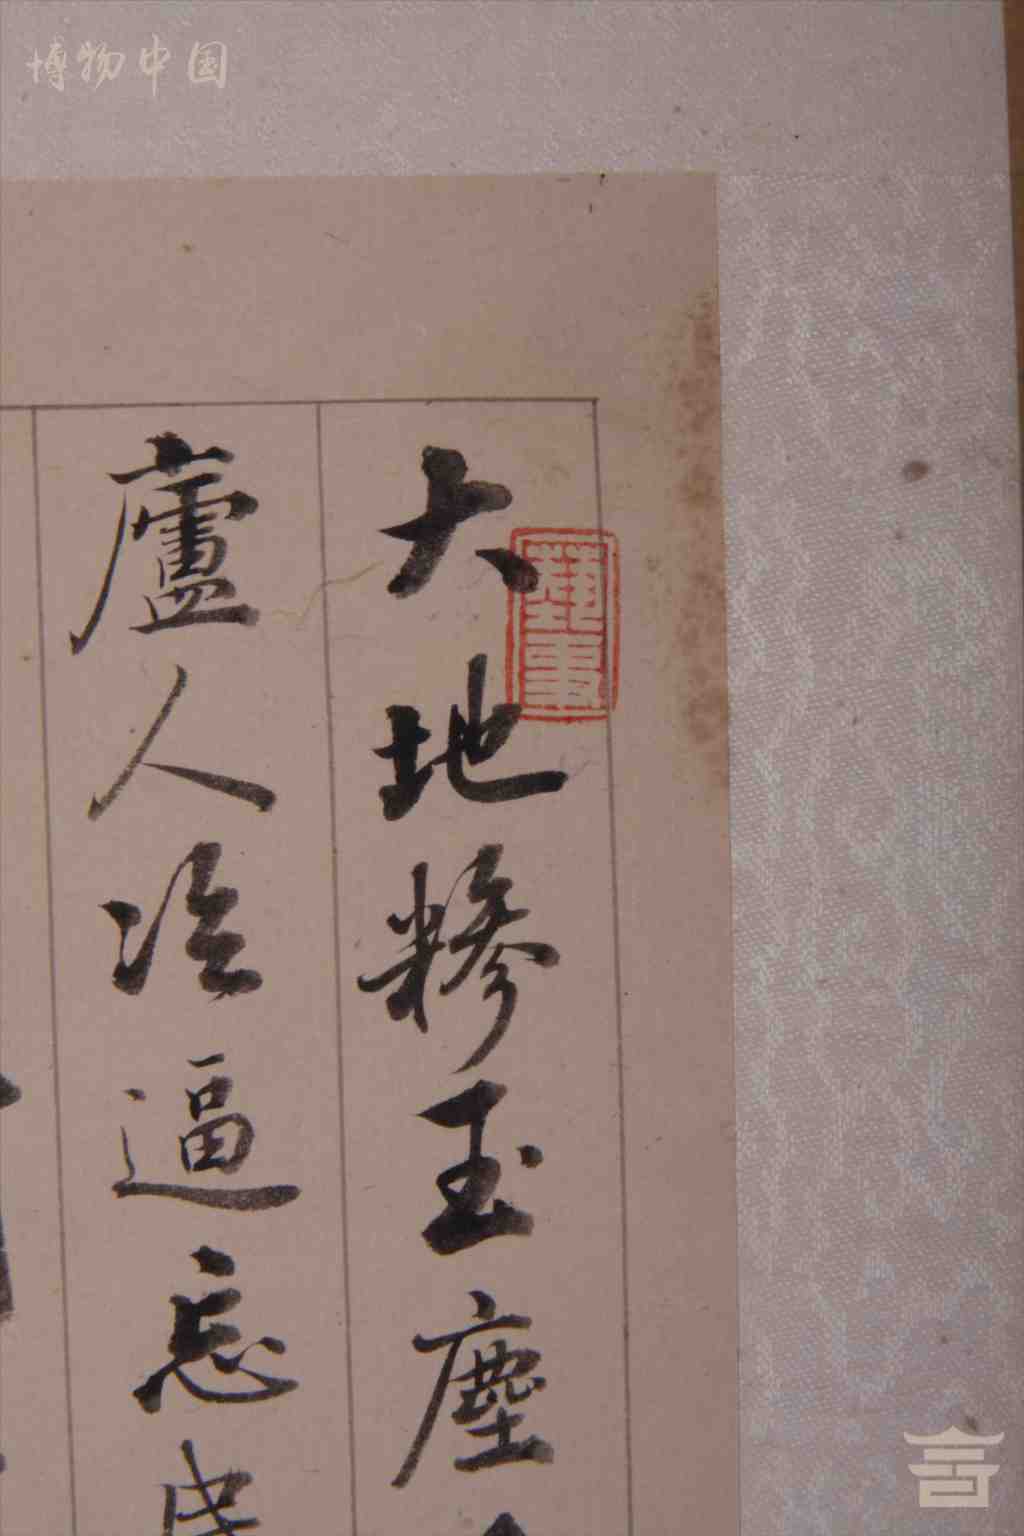 博物中国
大地糝玉塵
廬人冷逼忘